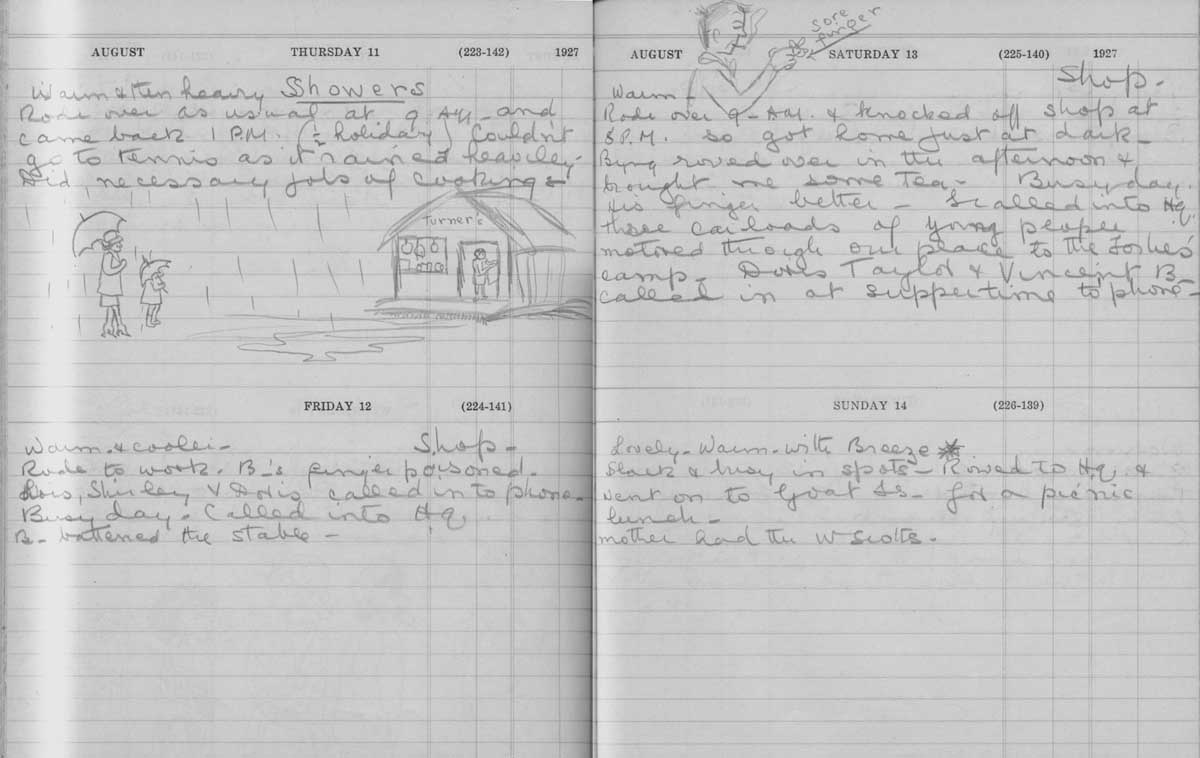 AUGUST THURSDAY 11 (223-142) 1927
Warm & then heavy Showers
Rode over as usual at 9 AM - and
came back 1 P.M. (½ holiday) Couldn't
go to tennis as it rained heaviley -
Did, necessary jobs of cooking &
Turner's
FRIDAY 12 (224-141)
Warm. & cooler - Shop -
Rode to work. B.'s finger poisoned.
Lois, Shirley & Doris called in to phone -
Busy day - Called into Hq
B - battened the stable -
sore
finger
AUGUST SATURDAY 13 (225-140) 1927
Shop -
Warm -
Rode over 9 - AM. & knocked off shop at
8 P.M. so got home just at dark -
Byng rowed over in the afternoon &
brought me some Tea - Busy day
His finger better - I called into Hq
three carloads of young people
motored through our place to the Forbes'
camp - Doris Taylor & Vincent B -
called in at suppertime to phone -
SUNDAY 14 (226-139)
Lovely - Warm - with Breeze
Slack & busy in spots - Rowed to Hq &
went on to Goat Is - for a picnic
lunch -
mother had the W Scotts.